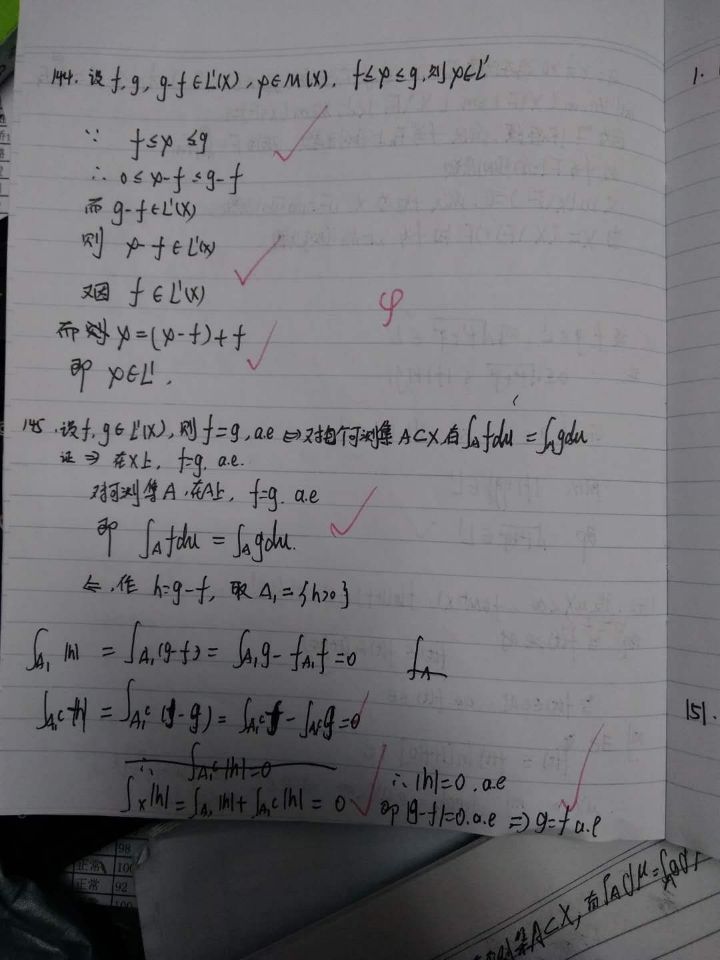 144. 设 f, g, g-f∈L¹(X), φ∈M(X), f≤φ≤g, 则φ∈L¹
∵ f≤φ≤g
∴ 0≤φ-f≤g-f
而 g-f∈L¹(X)
则 φ-f∈L¹(X)
又因 f∈L¹(X)
而则 φ=(φ-f)+f
即 φ∈L¹.
φ
145. 设f, g∈L¹(X), 则 f=g, a.e ⇔ 对每个可测集 A⊂X, 有∫_A fdu = ∫_A gdu
证 ⇒ 在X上, f=g. a.e.
对可测集A, 在A上, f=g. a.e
即 ∫_A fdu = ∫_A gdu.
⇐. 作 h=g-f, 取 A₁={h>0}
∫_A₁ |h| = ∫_A₁(g-f) = ∫_A₁ g - ∫_A₁ f = 0
∫_A
∫_A₁ᶜ |h| = ∫_A₁ᶜ (f-g) = ∫_A₁ᶜ f - ∫_A₁ᶜ g = 0
∴ ∫_A₁ᶜ |h| = 0
∫_X |h| = ∫_A₁ |h| + ∫_A₁ᶜ |h| = 0
∴ |h|=0. a.e
即 |g-f|=0. a.e ⇒ g=f a.e
1.
151.
98
正常 100
正常 92
100
集A⊂X, 有∫_A fdμ=∫_A gdμ